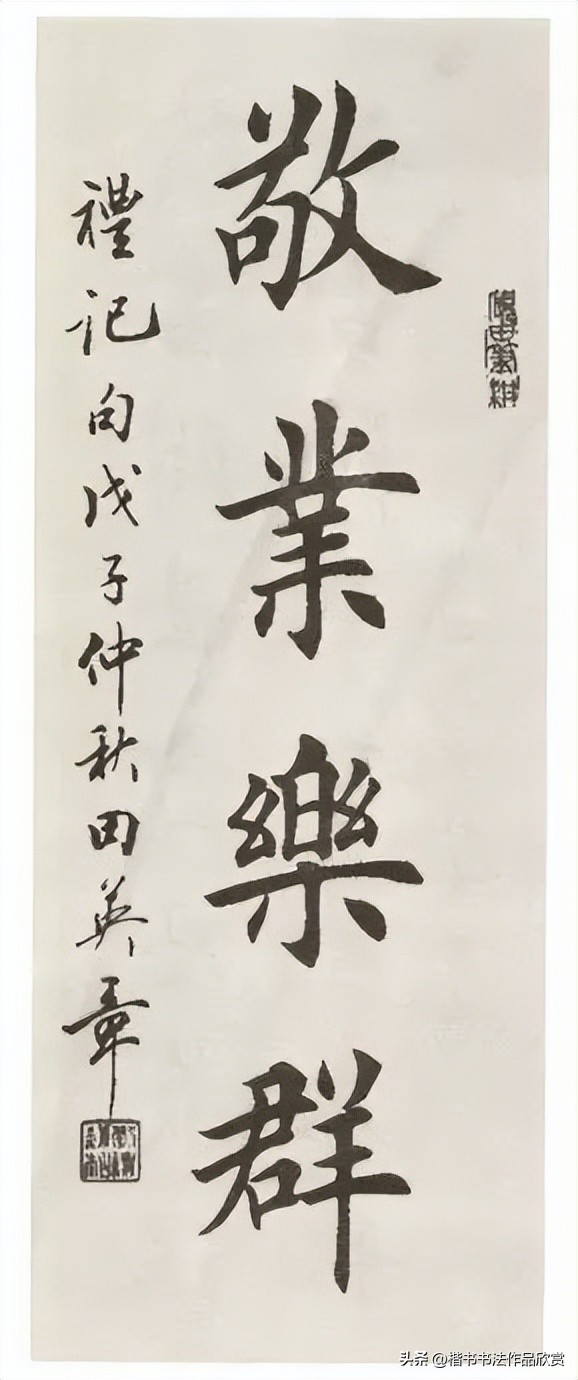 敬業樂群
禮記句戊子仲秋田英章
头条 @楷书书法作品欣赏